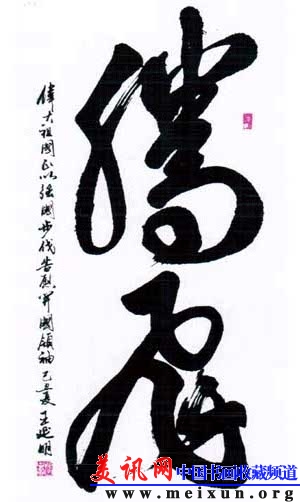 腾飞
伟大祖国正以强国步伐告慰开国领袖 己丑夏 王延明
美讯网
中国书画收藏频道
www.meixun.org